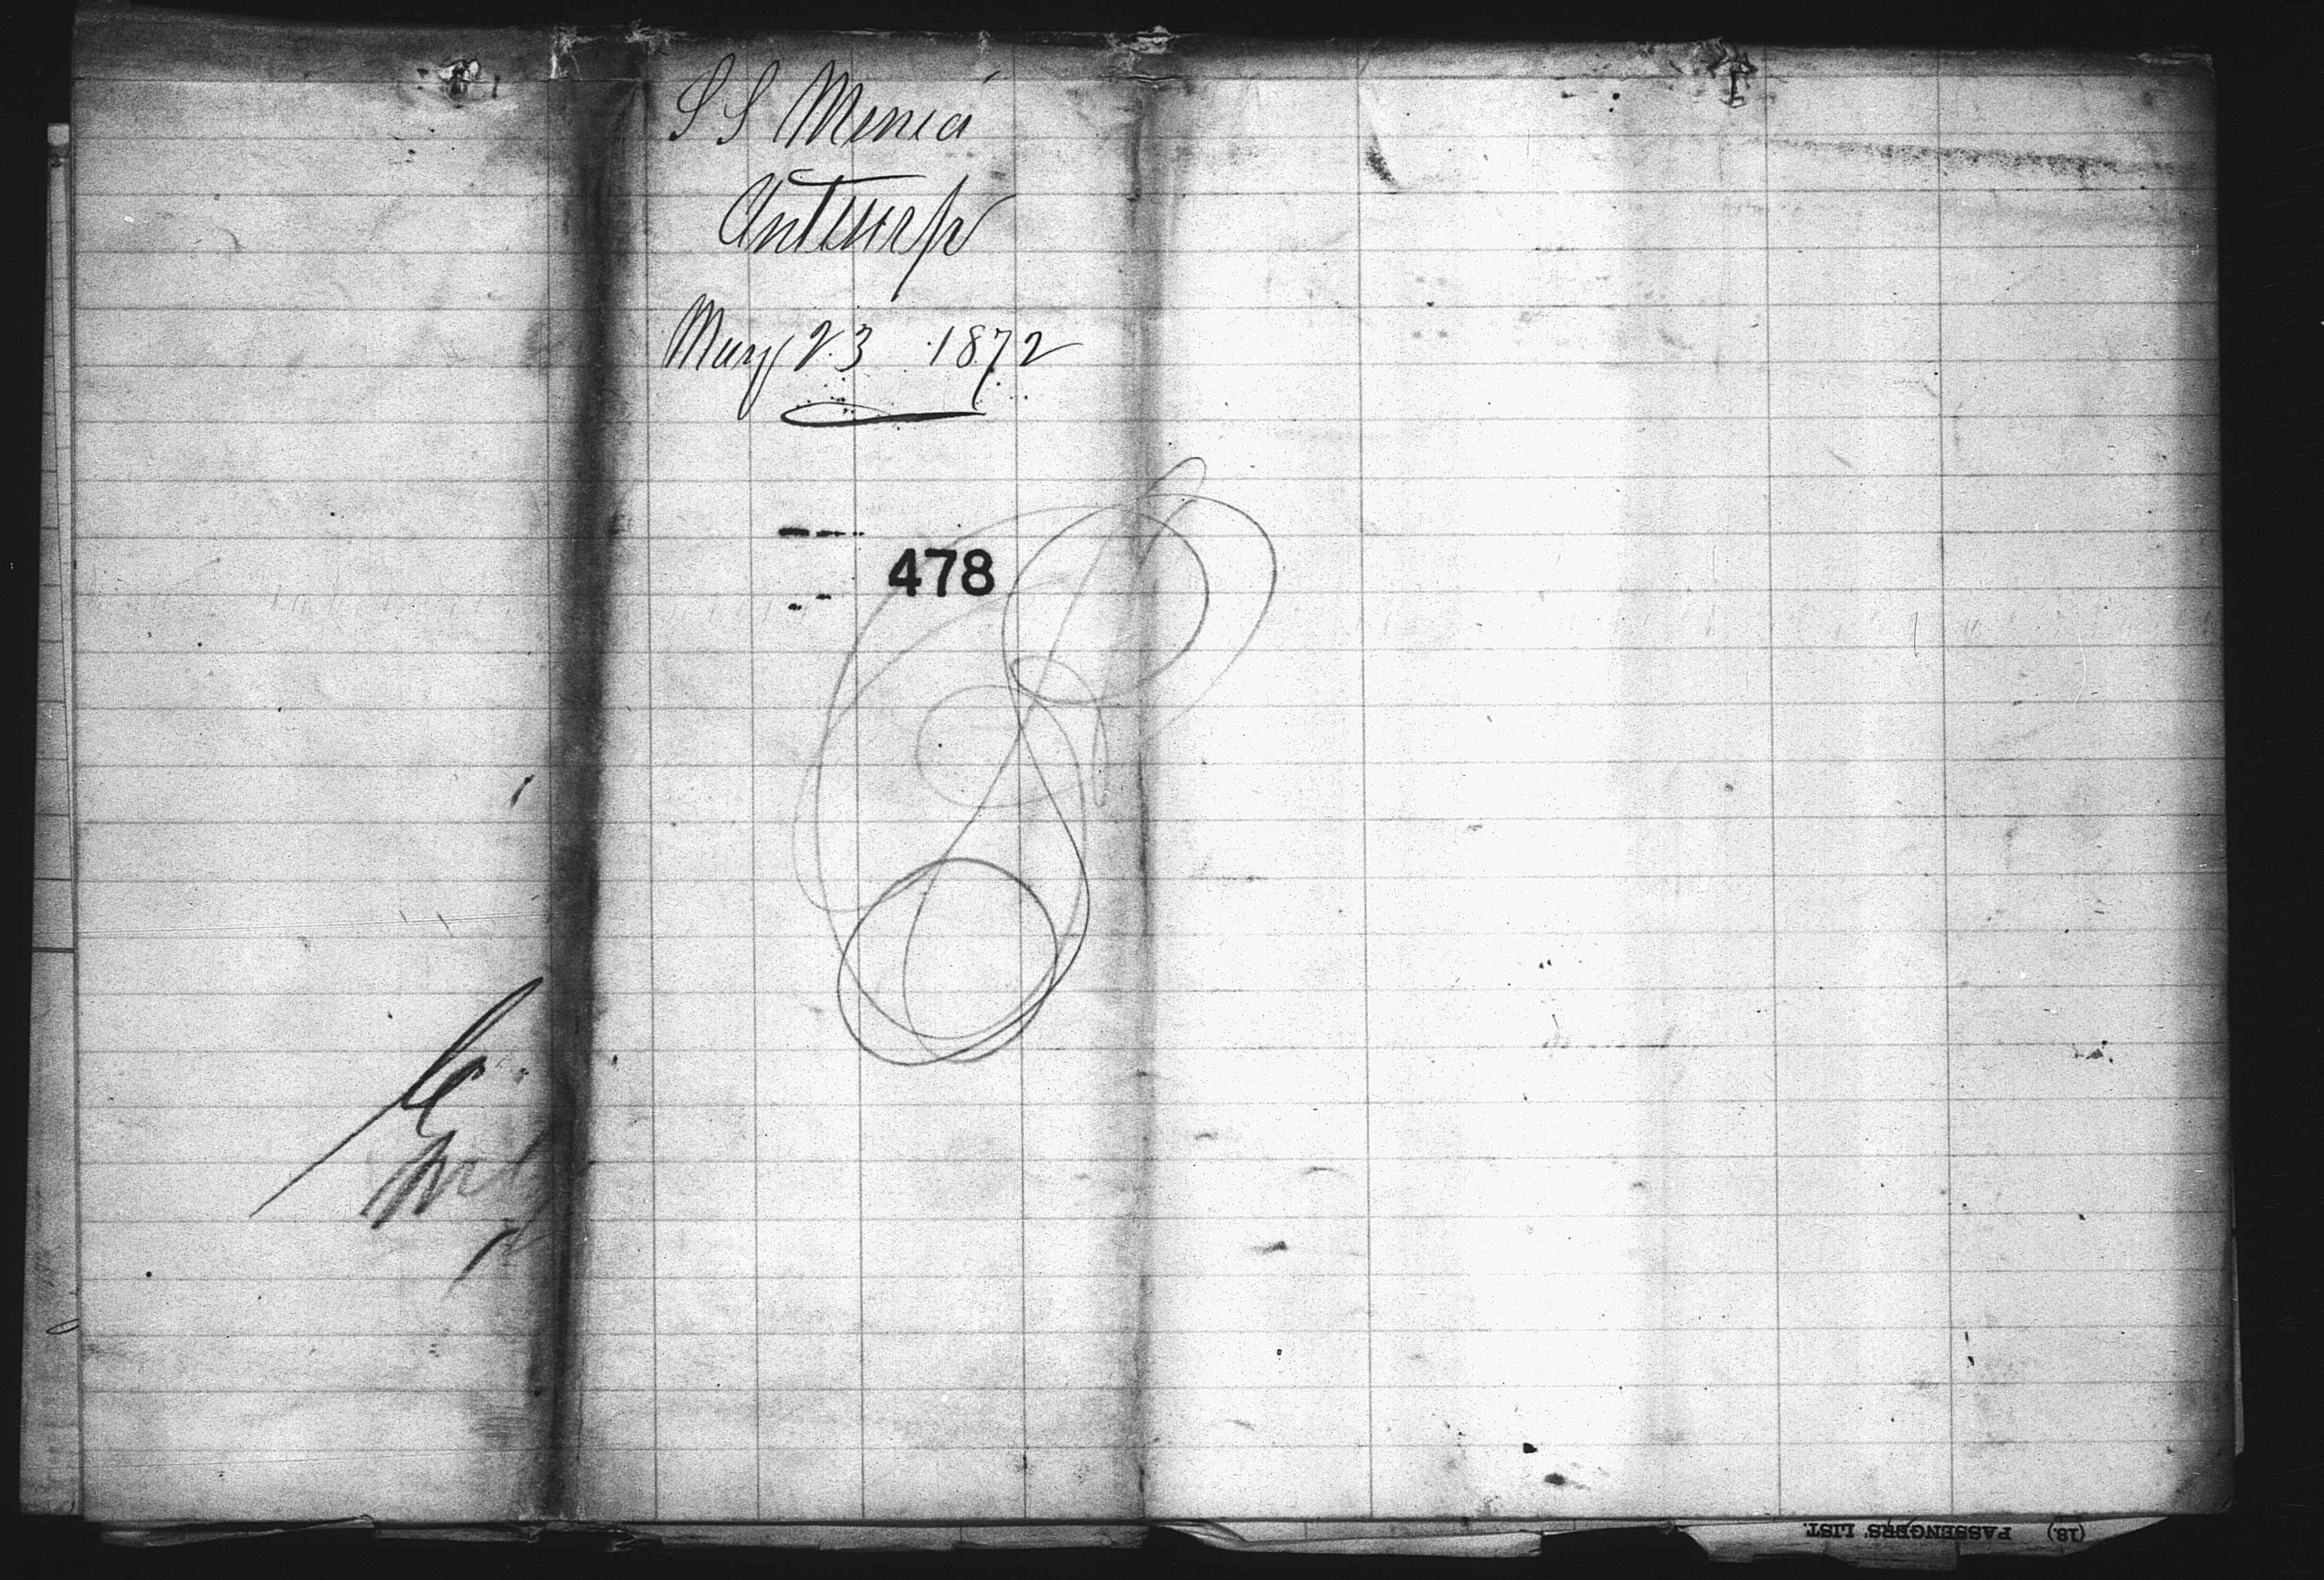 S S Menia
Antwerp
May 23 1872
478
(13.) PASSENGERS' LIST.